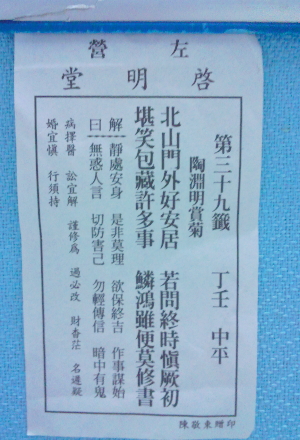 左營
啓明堂
第三十九籤 丁壬 中平
陶淵明賞菊
北山門外好安居 若問終時慎厥初
堪笑包藏許多事 鱗鴻雖便莫修書
解曰 靜處安身 是非莫理 欲保終吉 作事謀始
無惑人言 切防害己 勿輕傳信 暗中有鬼
病擇醫 訟宜解 謹修為 過必改 財杳茫 名遲疑
婚宜慎 行須待
陳敬來贈印